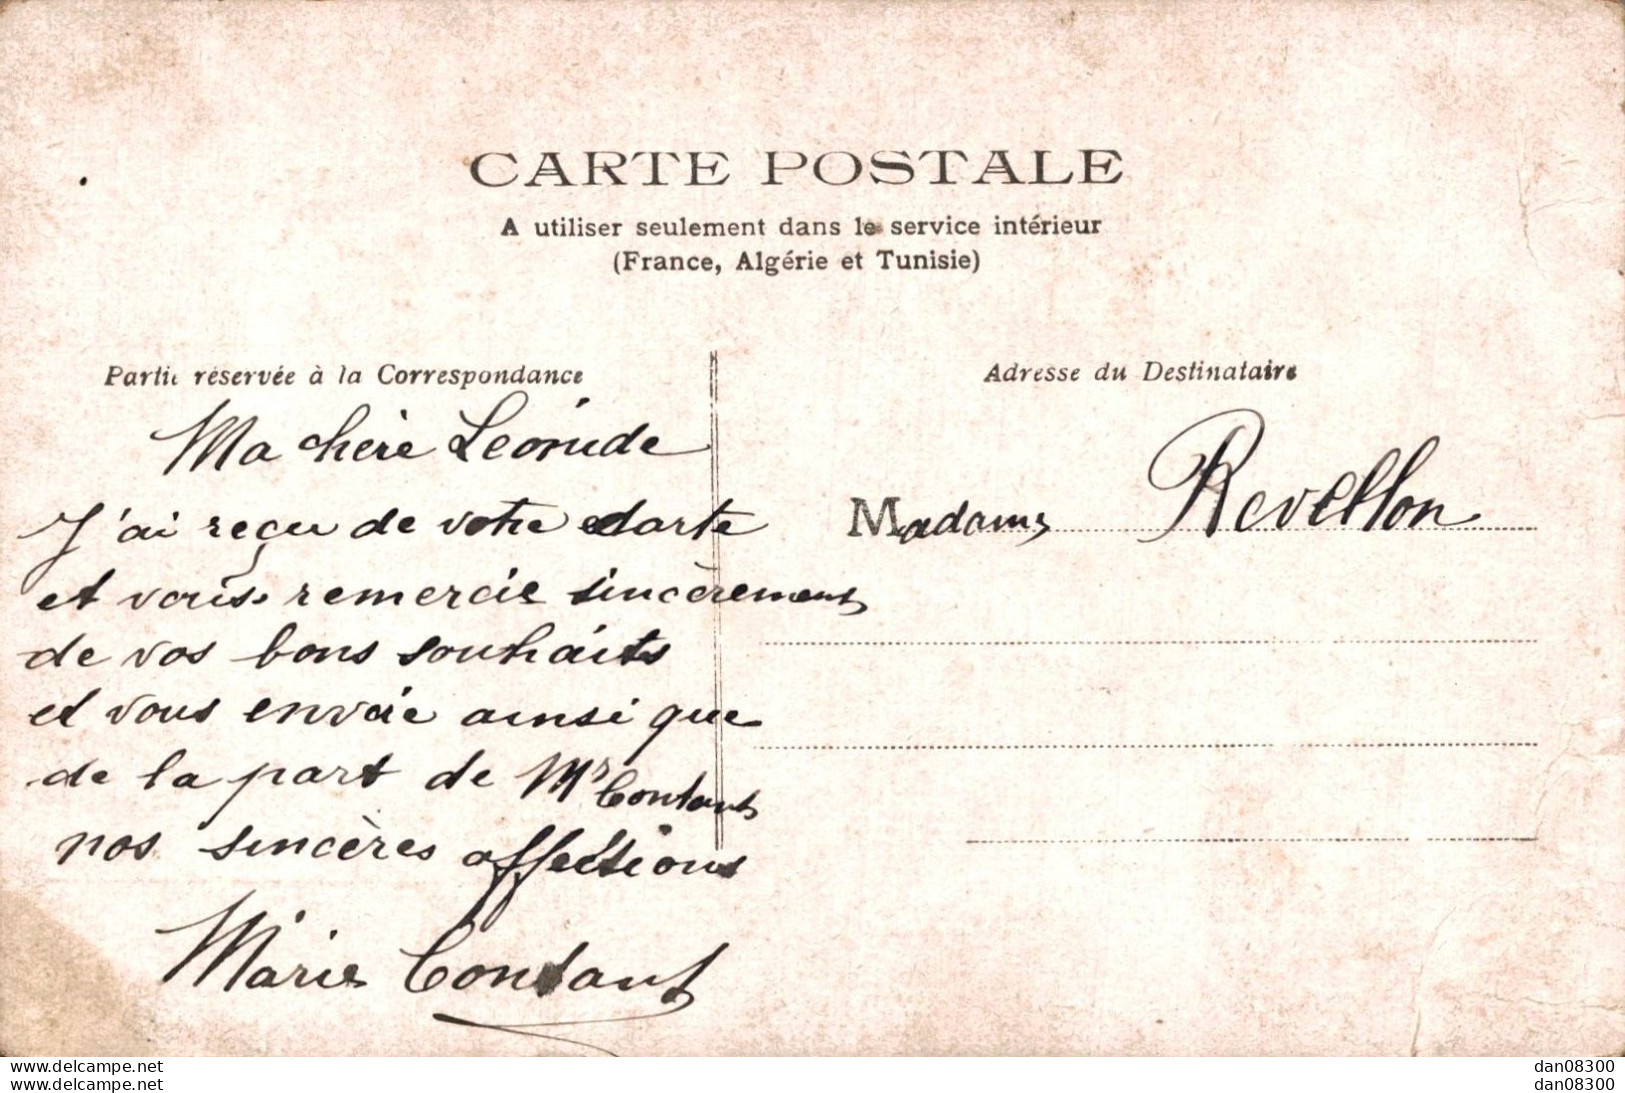 CARTE POSTALE
A utiliser seulement dans le service intérieur
(France, Algérie et Tunisie)
Partie réservée à la Correspondance
Ma chère Léonide
J'ai reçu de votre carte
et vous remercie sincèrement
de vos bons souhaits
et vous envoie ainsi que
de la part de Mr Contant
nos sincères affections
Marie Contant
Adresse du Destinataire
Madame Revellon
delcampe.net
dan08300
dan08300